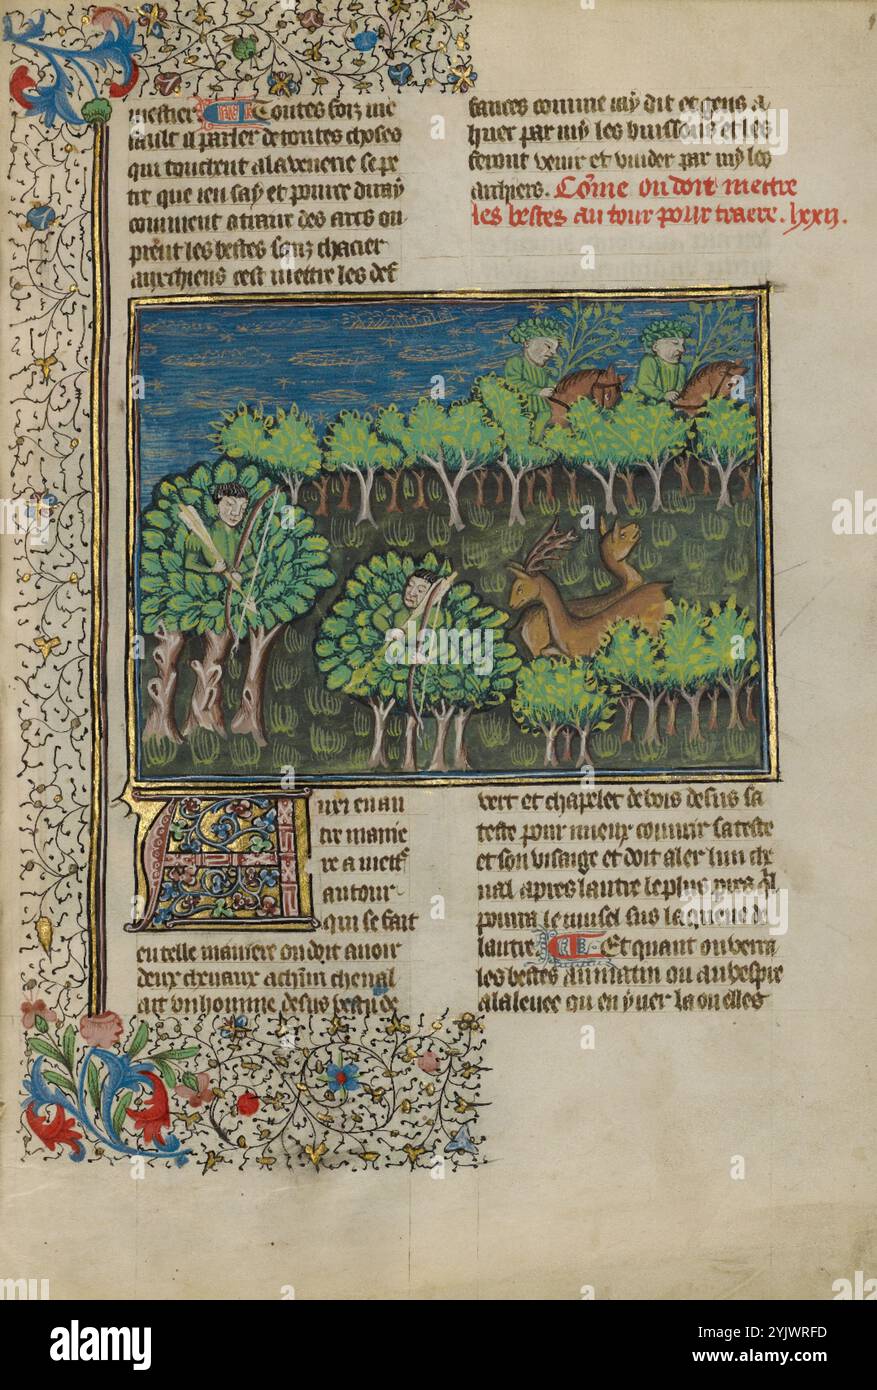 mestier. Toutes foiz me
fault il parler de toutes choses
qui touchent a la venerie se pe
tit que ien say et pource diray
comment a traire des arcs on
prent les bestes sanz chacier
aux chiens cest mettre les def
fances comme iay dit et gens a
huer par my les buissons et les
feront venir et vuider par my les
archiers. Coме on doit mettre
les bestes au tour pour traere. lxxij.
Uci en au
tre manie
re a mettre
au tour
qui se fait
en telle maniere on doit auoir
deux cheuaux a chun cheual
ait vn homme desus vestu de
vert et chapelet de bois desus sa
teste pour mieux couurir sa teste
et son visaige et doit aler lun che
ual apres lautre le plus pres ql
pourra le musel sus la queue de
lautre. Et quant on verra
les bestes au matin ou au vespre
a la leuee ou en yuer la ou elles
alamy
Image ID: 2YJWRFD
www.alamy.com